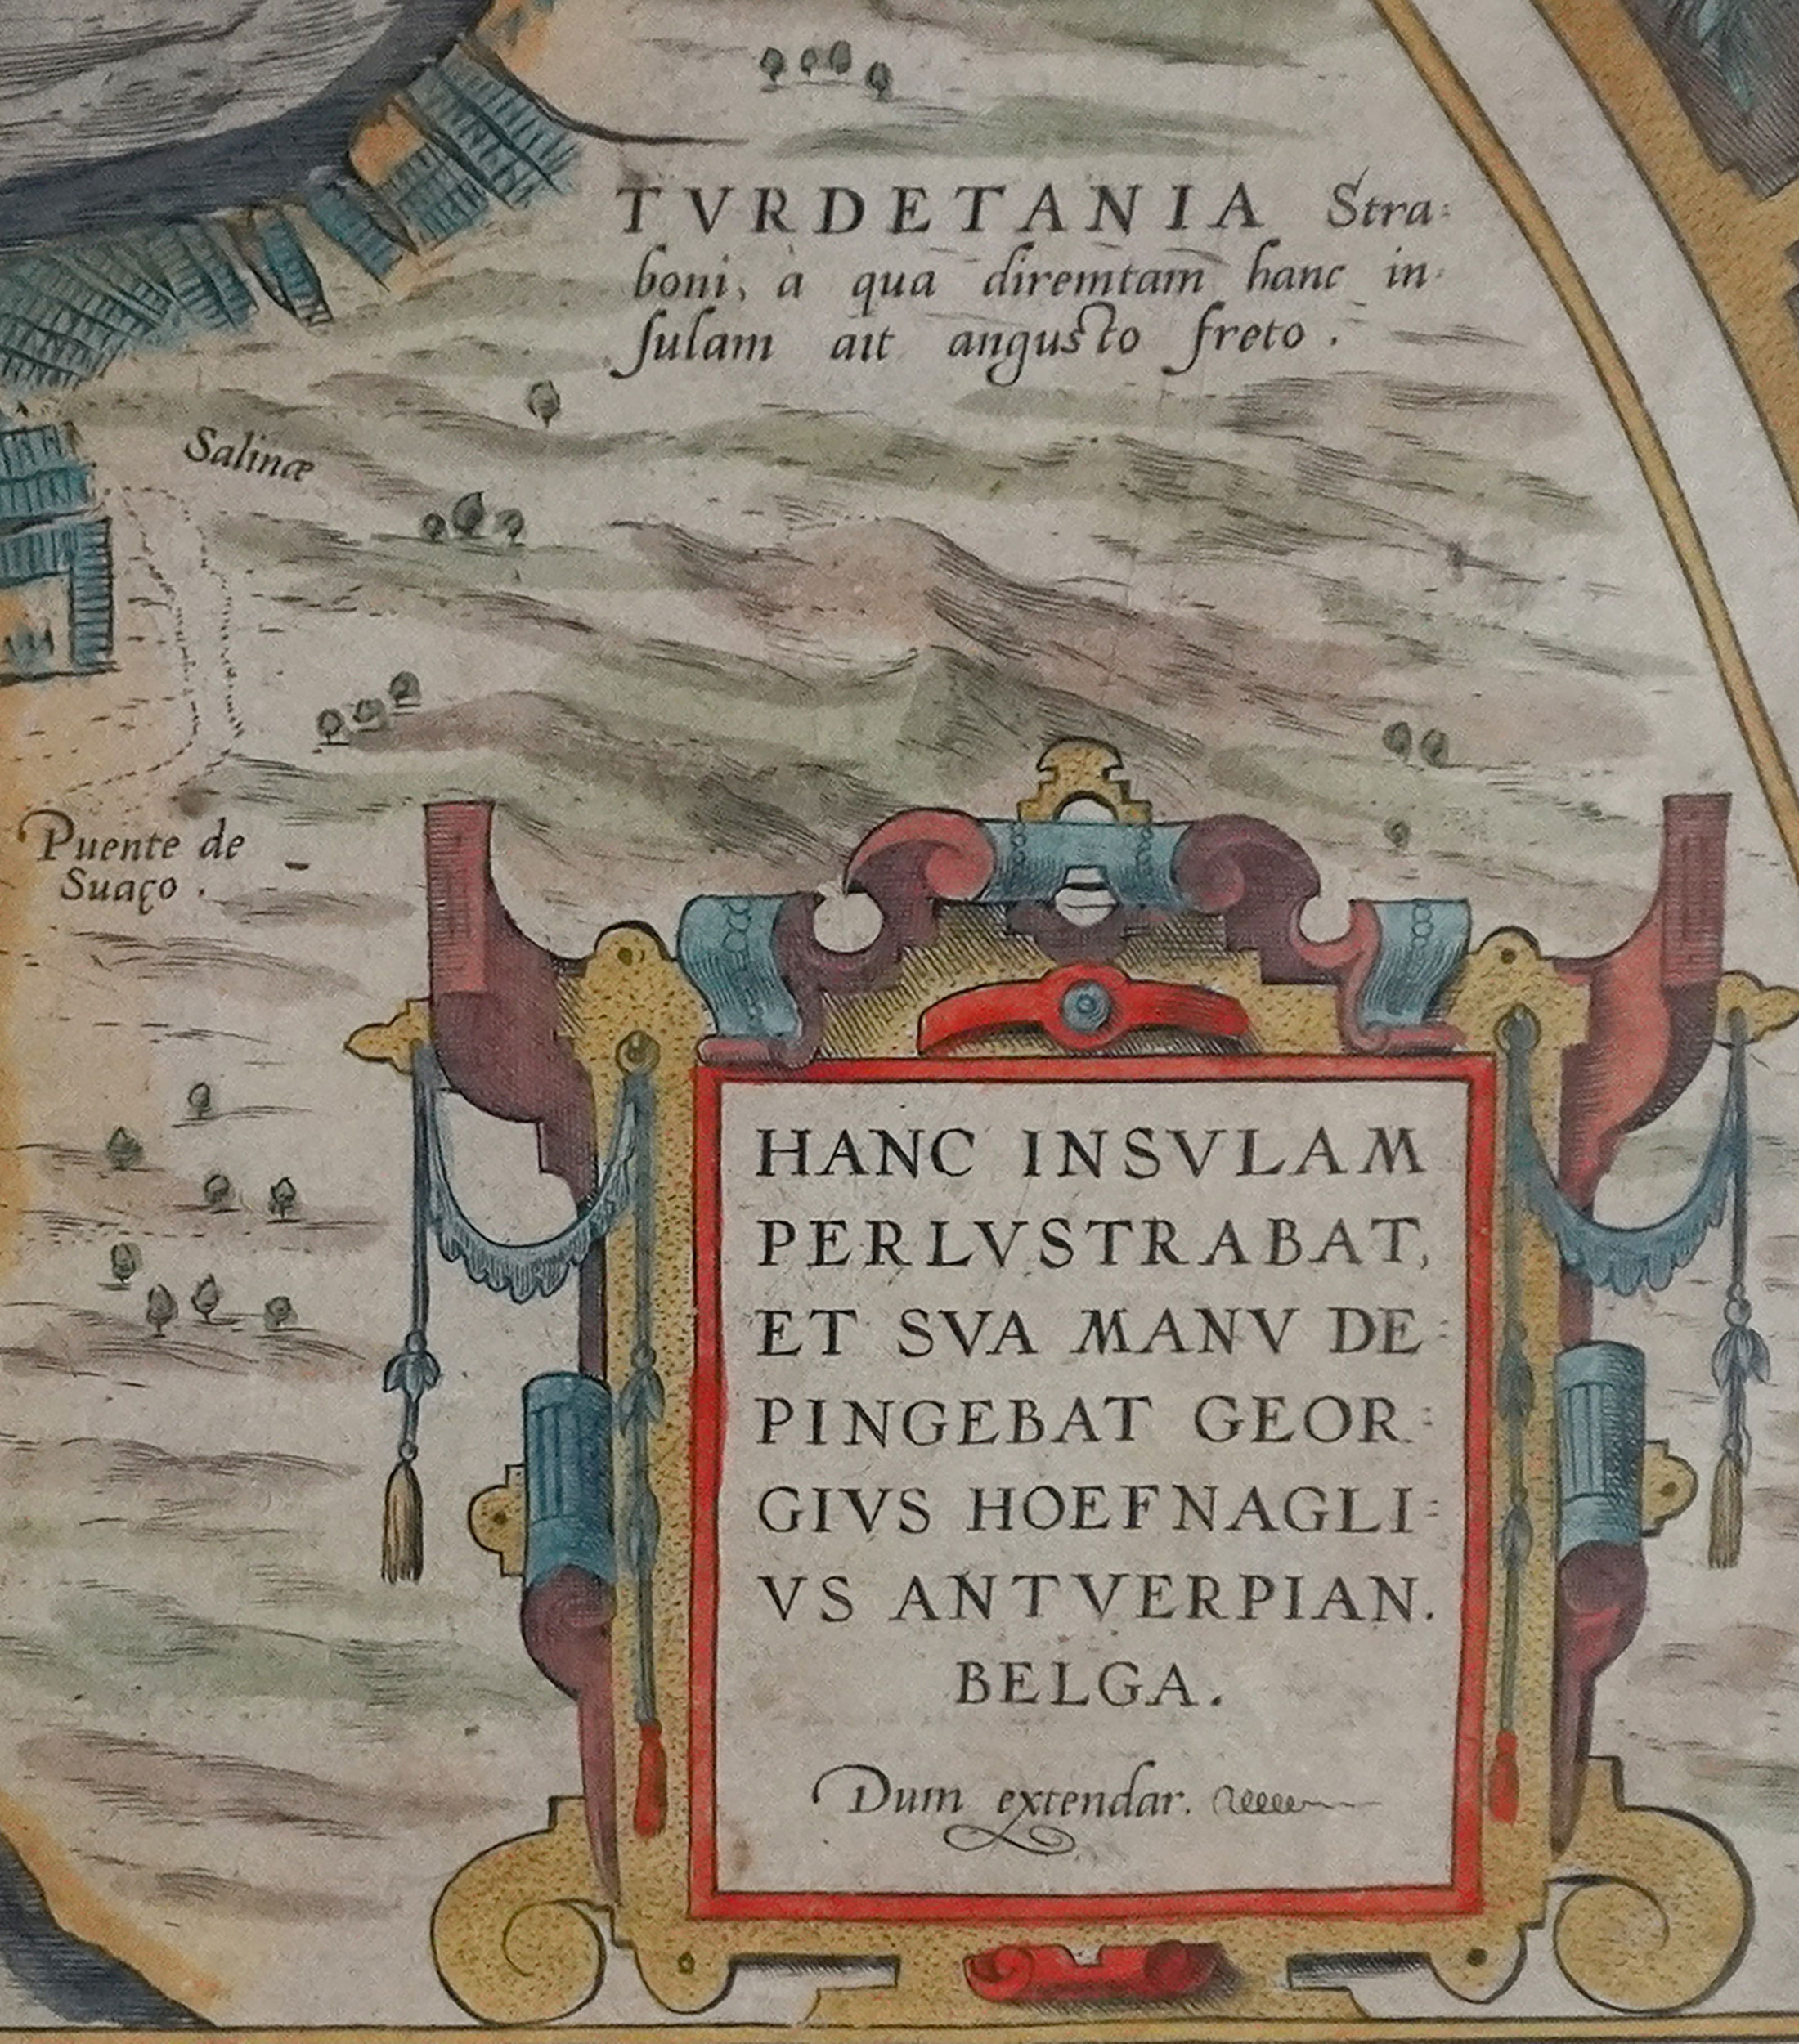 TVRDETANIA Stra:
boni, à qua diremtam hanc in:
sulam ait angusto freto.
Salinæ
Puente de
Suaço.
HANC INSVLAM
PERLVSTRABAT,
ET SVA MANV DE:
PINGEBAT GEOR:
GIVS HOEFNAGLI:
VS ANTVERPIAN.
BELGA.
Dum extendar.